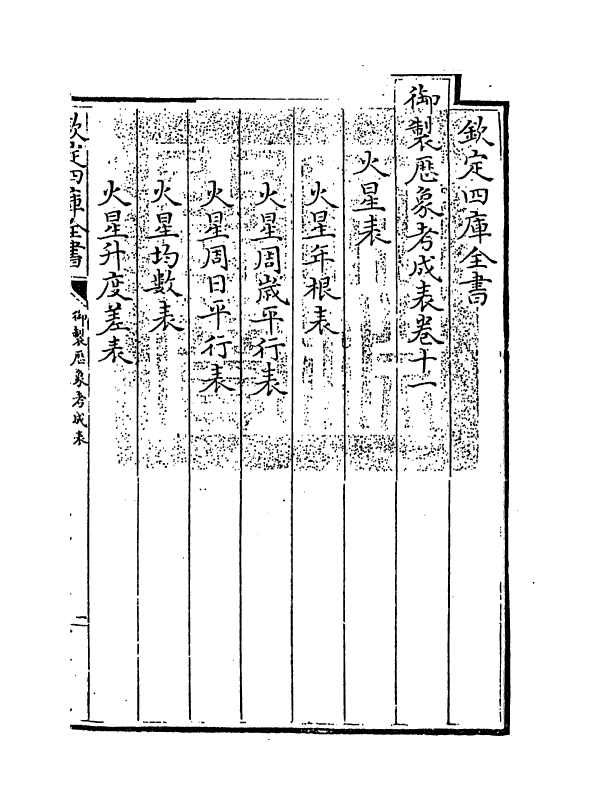 欽定四庫全書
御製厯象考成表卷十一
火星表
火星年根表
火星周嵗平行表
火星周日平行表
火星均數表
火星升度差表
欽定四庫全書
御製厯象考成表